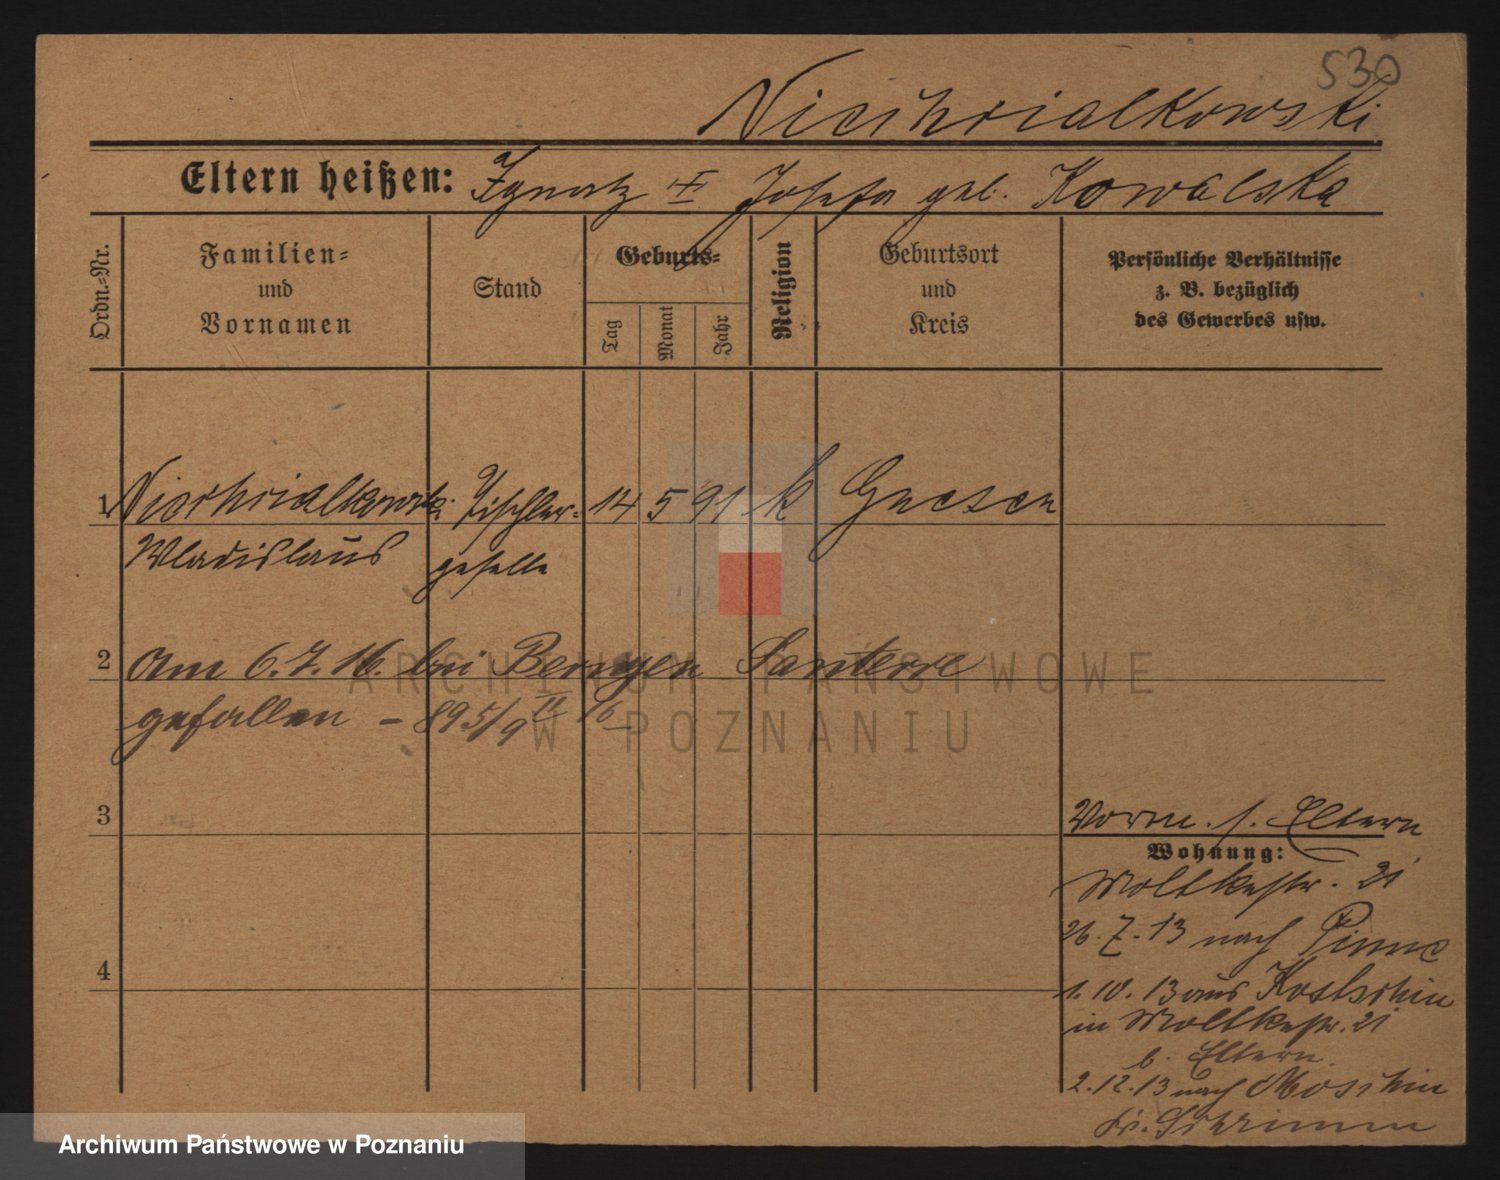 530
Niechcialkowski
Eltern heißen: Ignatz + Josefa geb. Kowalska
Ordn.-Nr.
Familien-
und
Vornamen
Stand
Geburts-
Tag
Monat
Jahr
Religion
Geburtsort
und
Kreis
Persönliche Verhältnisse
z. B. bezüglich
des Gewerbes usw.
1 Niechcialkowski Tischler- 14 5 91 k Gnesen
Wladislaus geselle
2 Am 6.7.16. bei Bernyen Santerre
gefallen – 895/9 II 16
3
Vorm. s. Eltern
Wohnung:
Moltkestr. 21
26.7.13 nach Pinne
4
1.10.13 aus Kostschin
in Moltkestr. 21
b. Eltern
2.12.13 nach Moschin
Kr. Schrimm
ARCHIWUM PAŃSTWOWE
W POZNANIU
Archiwum Państwowe w Poznaniu